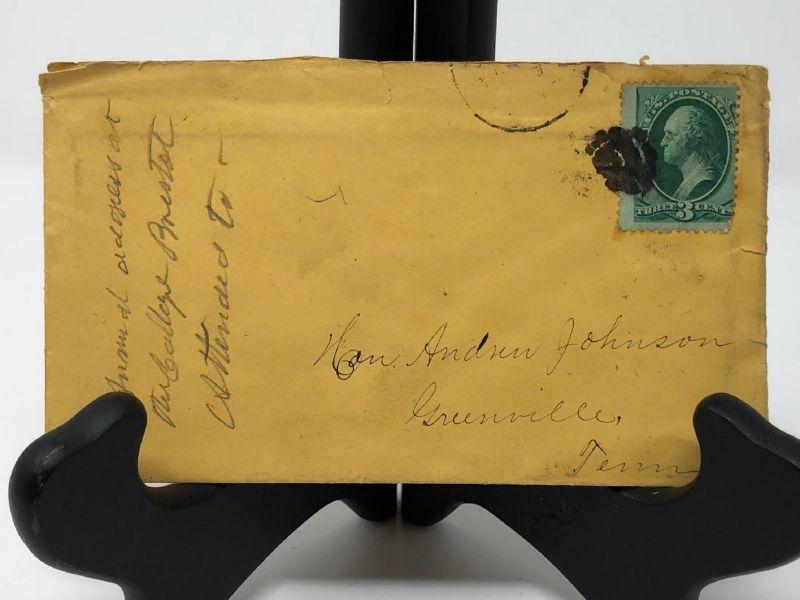 U.S. POSTAGE
THREE 3 CENTS
Hon. Andrew Johnson
Greenville,
Tenn
address at
the College Bristol
Attended to -